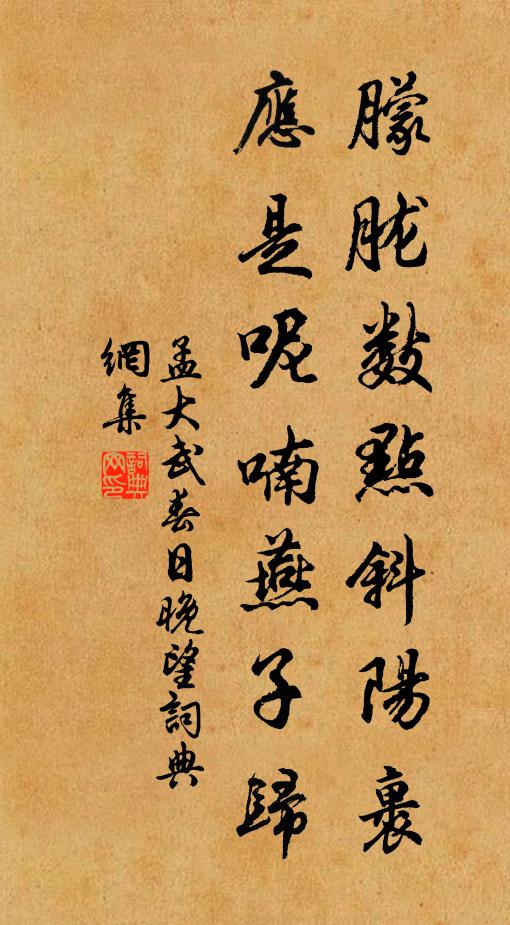 朦胧數點斜陽裏
應是呢喃燕子歸
孟大武春日晚望詞典
網集
詞典網印